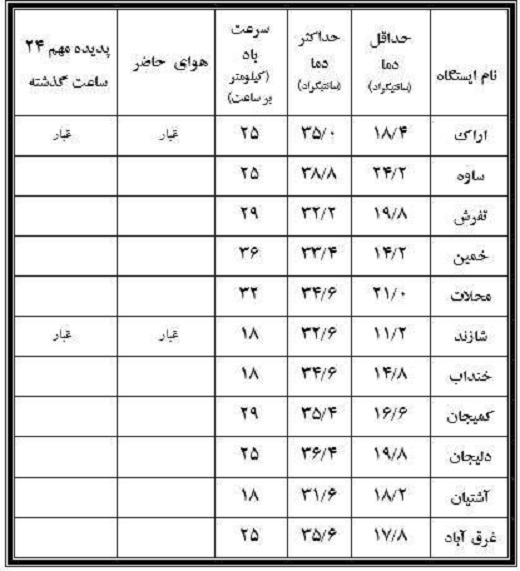 نام ایستگاه حداقل دما (سانتیگراد) حداکثر دما (سانتیگراد) سرعت باد (کیلومتر بر ساعت) هوای حاضر پدیده مهم ۲۴ ساعت گذشته
اراک ۱۸/۴ ۳۵/۰ ۲۵ غبار غبار
ساوه ۲۴/۲ ۳۸/۸ ۲۵
تفرش ۱۹/۸ ۳۲/۲ ۲۹
خمین ۱۴/۲ ۳۳/۴ ۳۶
محلات ۲۱/۰ ۳۴/۶ ۳۲
شازند ۱۱/۲ ۳۲/۶ ۱۸ غبار غبار
خنداب ۱۴/۸ ۳۴/۶ ۱۸
کمیجان ۱۶/۶ ۳۵/۴ ۲۹
دلیجان ۱۹/۸ ۳۶/۴ ۲۵
آشتیان ۱۸/۲ ۳۱/۶ ۱۸
غرق آباد ۱۷/۸ ۳۵/۶ ۲۵